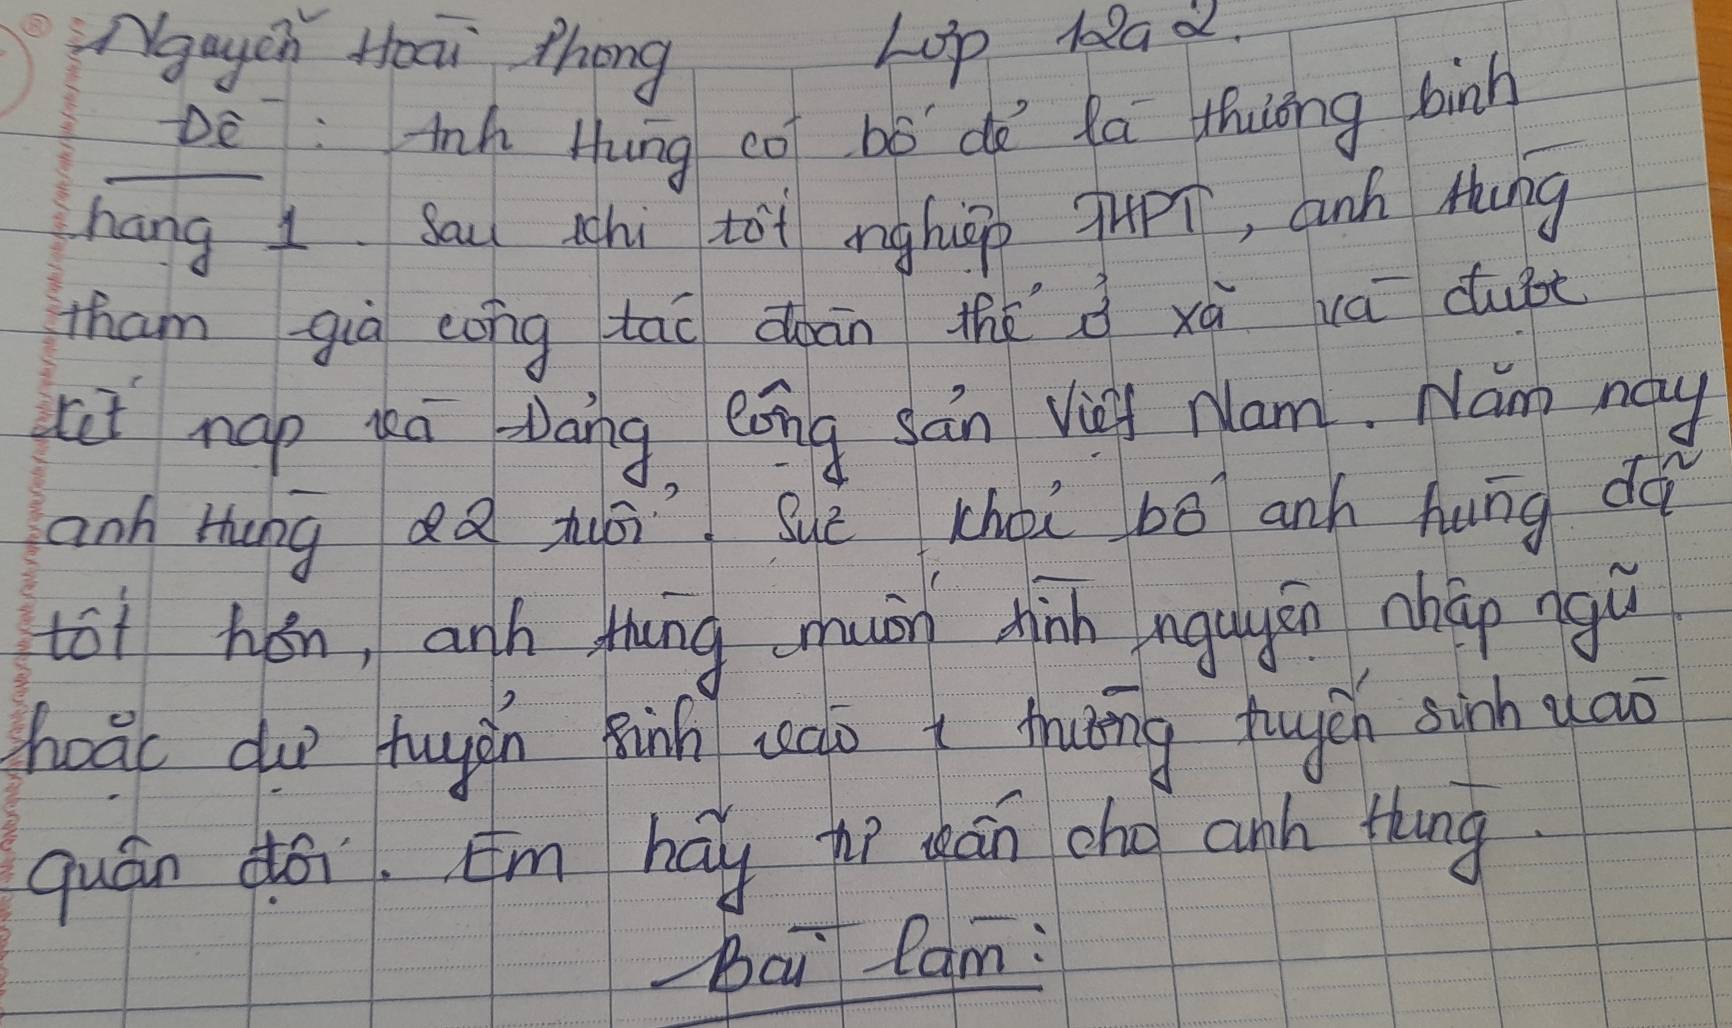 Nguyễn Hoài Phong Lớp 12a2.
Đề: Anh Hùng có bố đẻ là thương binh
hạng 1. Sau khi tốt nghiệp THPT, anh Hùng
tham gia công tác đoàn thể ở xã và được
kết nạp và Đảng Cộng sản Việt Nam. Năm nay
anh Hùng 22 tuổi. Sức khỏi bố anh hùng đã
tốt hơn, anh Hùng muốn tình nguyện nhập ngũ
hoặc dự tuyển sinh vào 1 trường tuyển sinh vào
quân đội. Em hãy tư vấn cho anh Hùng.
Bài làm: